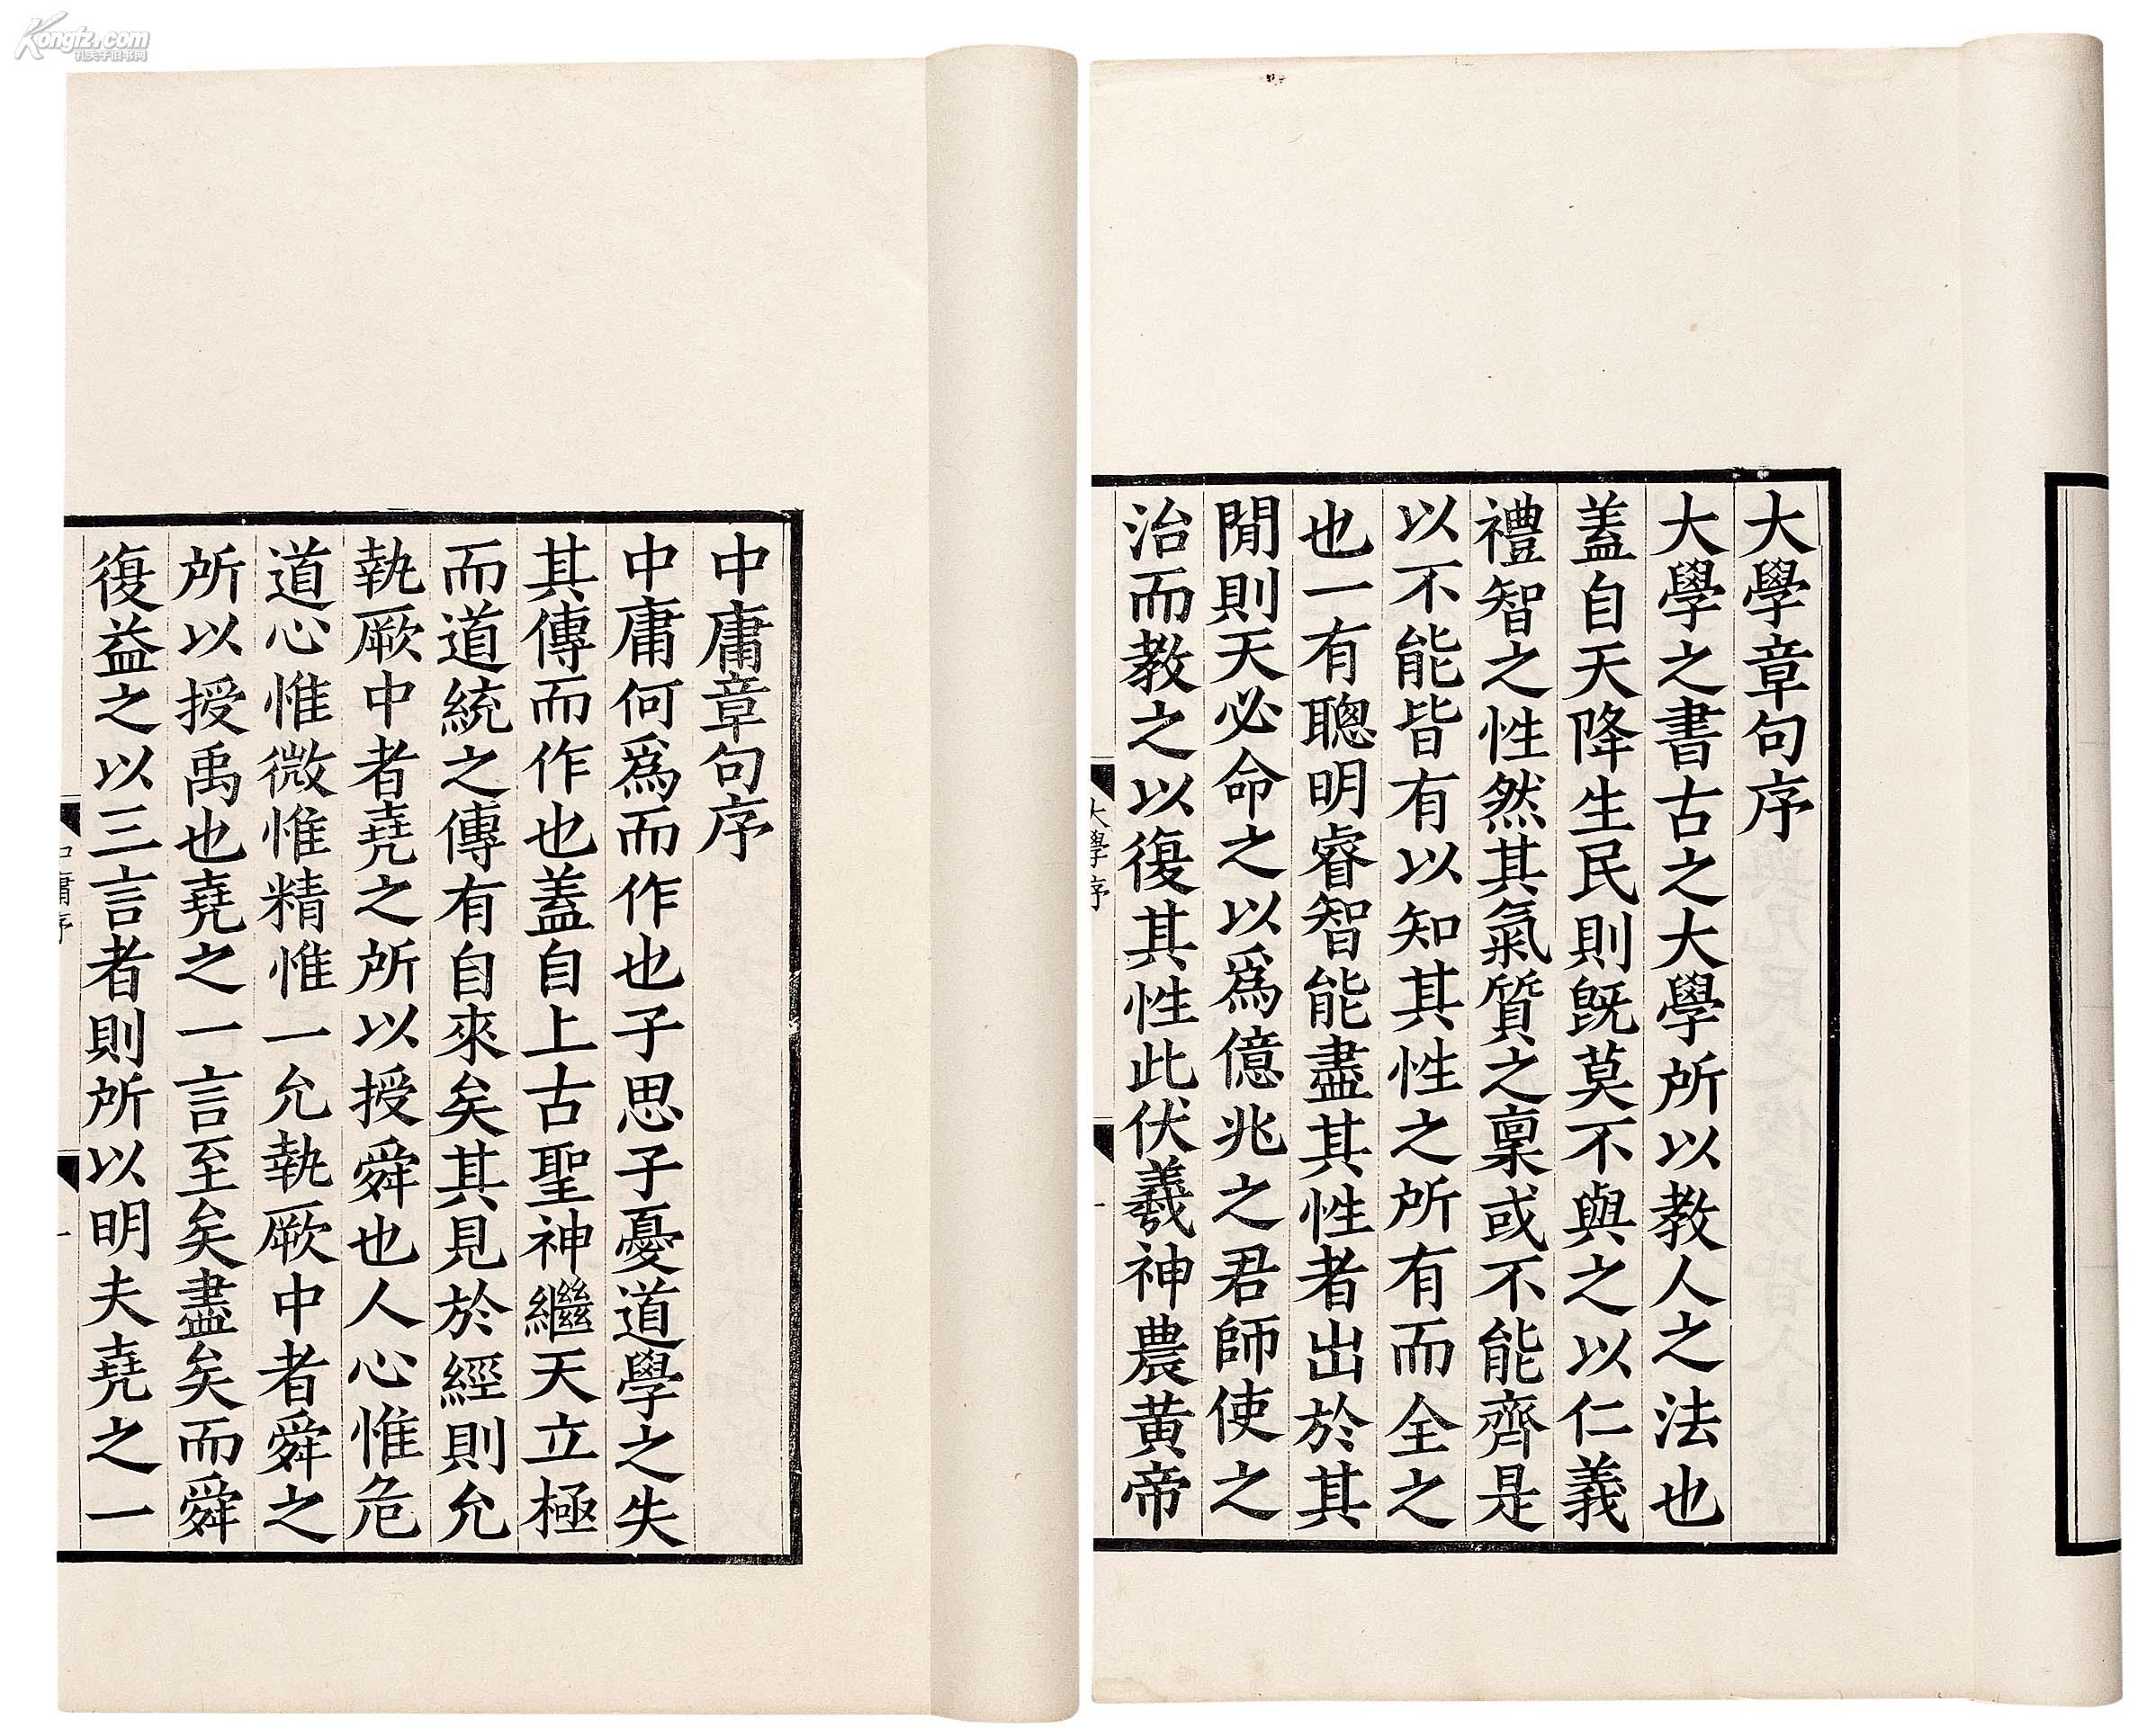 Kongfz.com
孔夫子旧书网
大學章句序
大學之書古之大學所以教人之法也
蓋自天降生民則既莫不與之以仁義
禮智之性然其氣質之稟或不能齊是
以不能皆有以知其性之所有而全之
也一有聰明睿智能盡其性者出於其
閒則天必命之以爲億兆之君師使之
治而教之以復其性此伏羲神農黃帝
大學序
一
中庸章句序
中庸何爲而作也子思子憂道學之失
其傳而作也蓋自上古聖神繼天立極
而道統之傳有自來矣其見於經則允
執厥中者堯之所以授舜也人心惟危
道心惟微惟精惟一允執厥中者舜之
所以授禹也堯之一言至矣盡矣而舜
復益之以三言者則所以明夫堯之一
中庸序
一